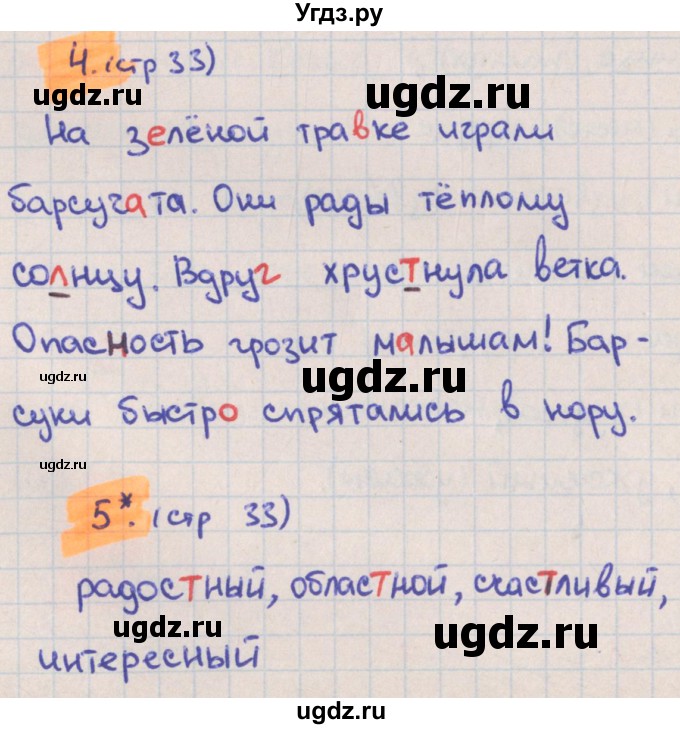 Угдз.ру
4. (стр 33)
ugdz.ru
ugdz.ru
На зелёной травке играли
барсучата. Они рады тёплому
солнцу. Вдруг хрустнула ветка.
Опасность грозит малышам! Бар-
ugdz.ru
ugdz.ru
суки быстро спрятались в нору.
ugdz.ru
5*. (стр 33)
радостный, областной, счастливый,
ugdz.ru
ugdz.ru
интересный
ugdz.ru